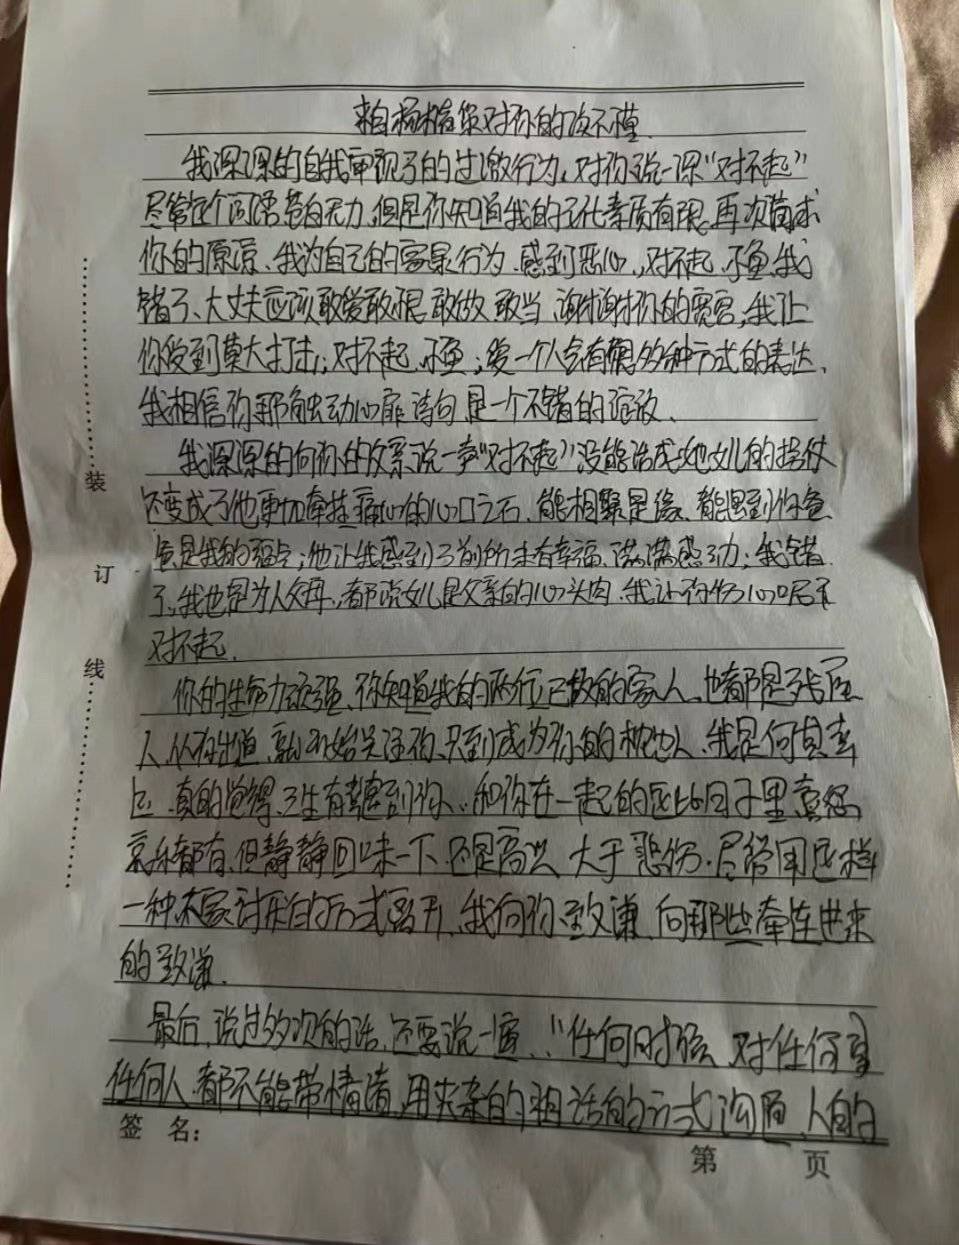 来自杨 对你的 不
我深深的自我审视了的过激行为,对你说一深“对不起”
尽管这个词语苍白无力,但是你知道我的文化素质有限,再次请求
你的原谅、我为自己的家暴行为,感到恶心,对不起,小鱼,我
错了、大丈夫应该敢爱敢恨敢做敢当,谢谢你的宽容,我让
你受到莫大打击;对不起,小鱼;爱一个人会有很多种方式的表达、
我相信你那触动心扉诗句,是一个不错的
我深深的向你的父亲说一声“对不起”没能活成他女儿的
还变成了他更加牵挂痛心的心口之石,能相聚是缘、能遇到你鱼
鱼是我的福点;他让我感到了前所未有幸福,满满感动;我错
了,我也是为人父母,都说女儿是父亲的心头肉,我让你伤心
对不起.
你的生命力顽强、你知道我的两位已故的家人,也都是残
人,从你出道,就开始关注你,只到成为你的枕边人,我是何其幸
真的觉得,三生有 遇到你、和你在一起的 日子里喜怒
哀乐都有,但静静回味一下,还是高兴大于悲伤.尽管用这样
一种 方式离开,我向你致谦,向那些牵连进来
的致谦.
最后,说过多次的话,还要说一遍,“任何时候,对任何事
任何人,都不能带情绪,用夹杂的 话的方式沟通,人的
装
订
线
签 名:
第 页